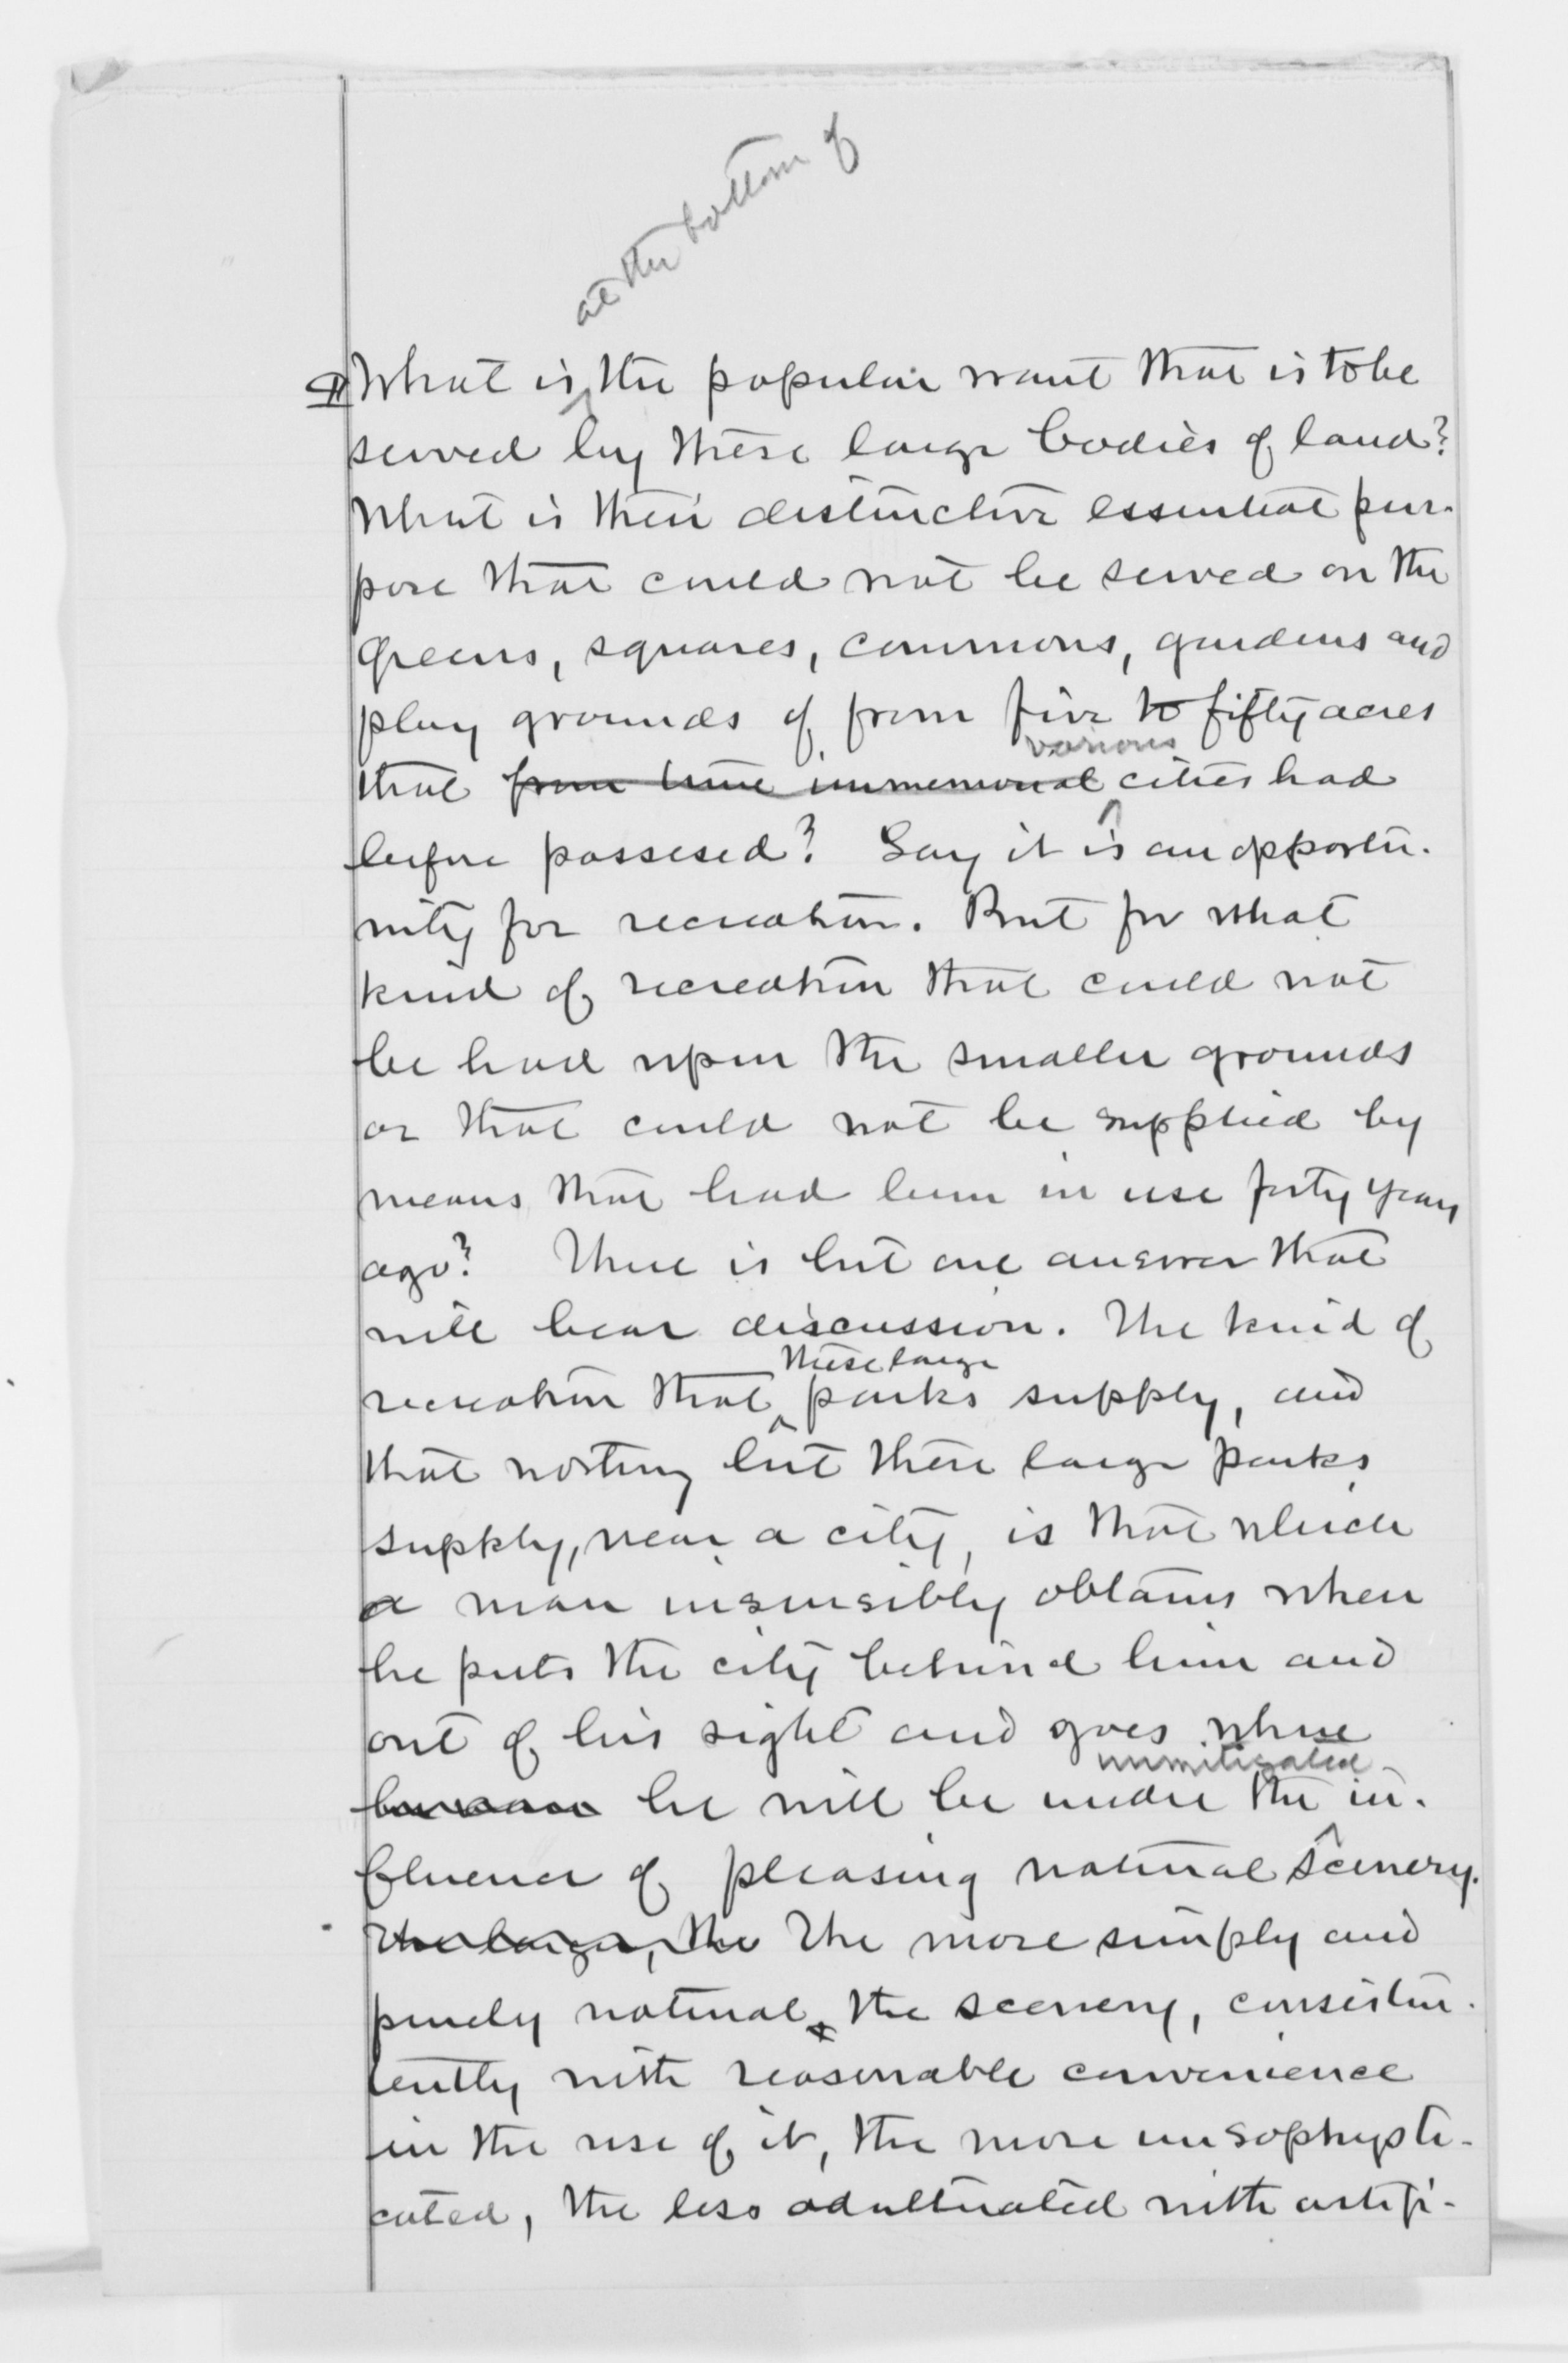 at the bottom of
¶ What is the popular want that is to be
served by these large bodies of land?
What is their distinctive essential pur-
pose that could not be served on the
greens, squares, commons, gardens and
play grounds of from five to fifty acres
various
that from time immemorial cities had
before possesed? Say it is an opportu-
nity for recreation. But for what
kind of recreation that could not
be had upon the smaller grounds
or that could not be supplied by
means that had been in use forty years
ago? There is but one answer that
will bear discussion. The kind of
these large
recreation that parks supply, and
that nothing but these large parks
supply, near a city, is that which
a man insensibly obtains when
he puts the city behind him and
out of his sight and goes where
unmitigated
he will be under the in-
fluence of pleasing natural scenery.
The larger, the The more simply and
purely natural the scenery, consistin-
tently with reasonable convenience
in the use of it, the more unsophysti-
cated, the less adulturated with artifi-